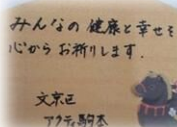 みんなの健康と幸せを
心からお祈りします。
文京区
アクティ駒本